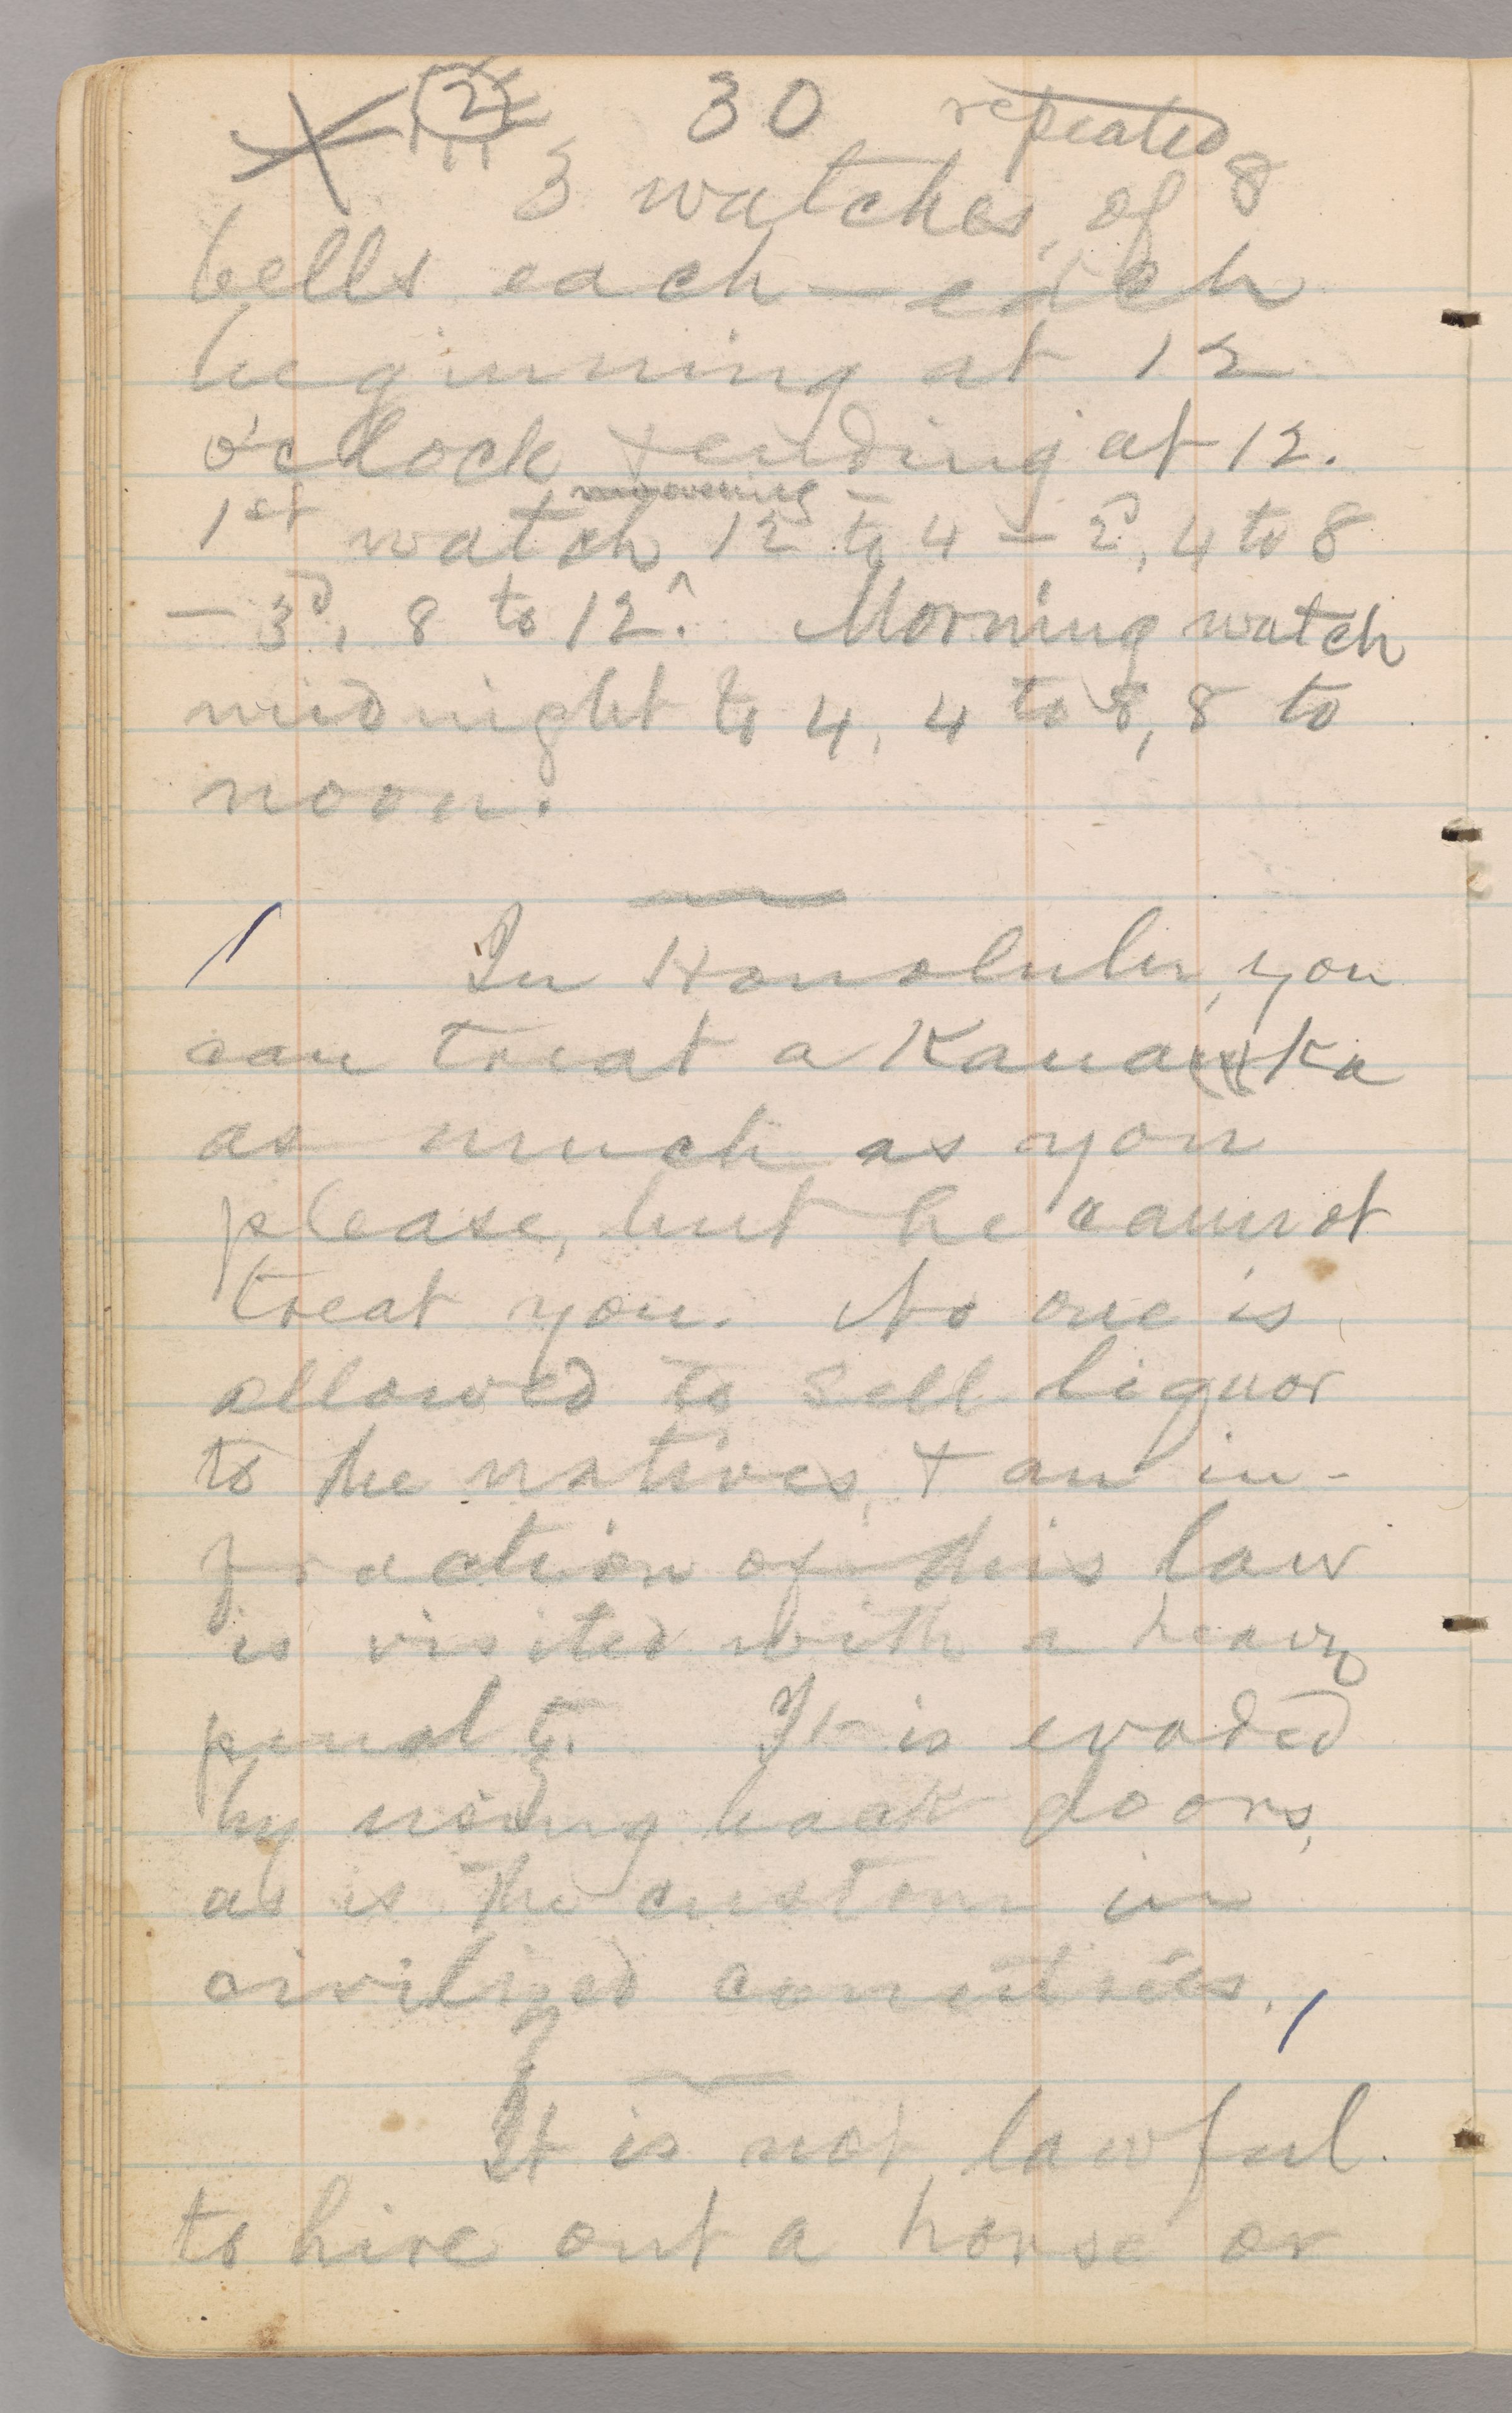 2 30 repeated
3 watches, of 8
bells each — each
beginning at 12
o'clock + ending at 12.
evening
1st watch 12 to 4 — 2d, 4 to 8
— 3d, 8 to 12. Morning watch
midnight to 4, 4 to 8, 8 to
noon.
In Honolulu, you
can treat a Kanaka
as much as you
please, but he cannot
treat you. No one is
allowed to sell liquor
to the natives, + an in-
fraction of this law
is visited with a heavy
penalty. It is evaded
by using back doors,
as is the custom in
civilized countries.
It is not lawful
to hire out a horse or